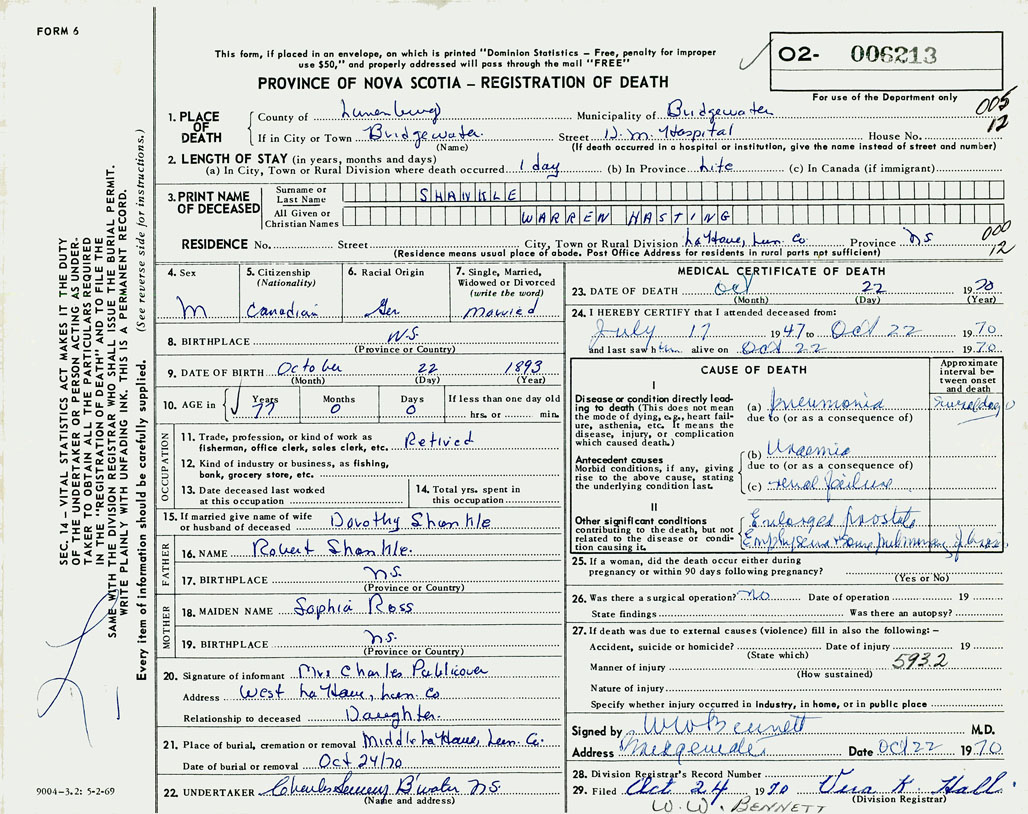 FORM 6
This form, if placed in an envelope, on which is printed "Dominion Statistics – Free, penalty for improper
use $50," and properly addressed will pass through the mail "FREE"
O2- 006213
For use of the Department only
PROVINCE OF NOVA SCOTIA – REGISTRATION OF DEATH
005
12
1. PLACE OF DEATH
County of Lunenburg Municipality of Bridgewater
If in City or Town Bridgewater. Street D. M. Hospital House No.
(Name) (If death occurred in a hospital or institution, give the name instead of street and number)
2. LENGTH OF STAY (in years, months and days)
(a) In City, Town or Rural Division where death occurred 1 day (b) In Province Life (c) In Canada (if immigrant)
3. PRINT NAME OF DECEASED
Surname or Last Name SHANKLE
All Given or Christian Names WARREN HASTING
000
12
RESIDENCE No. Street City, Town or Rural Division LaHave, Lun. Co Province NS
(Residence means usual place of abode. Post Office Address for residents in rural parts not sufficient)
4. Sex M
5. Citizenship (Nationality) Canadian
6. Racial Origin Ger.
7. Single, Married, Widowed or Divorced (write the word) Married
8. BIRTHPLACE N.S.
(Province or Country)
9. DATE OF BIRTH October 22 1893
(Month) (Day) (Year)
10. AGE in Years 77 Months 0 Days 0 If less than one day old
hrs. or min.
OCCUPATION
11. Trade, profession, or kind of work as
fisherman, office clerk, sales clerk, etc. Retired
12. Kind of industry or business, as fishing,
bank, grocery store, etc.
13. Date deceased last worked
at this occupation
14. Total yrs. spent in
this occupation
15. If married give name of wife
or husband of deceased Dorothy Shankle
FATHER
16. NAME Robert Shankle.
17. BIRTHPLACE N.S.
(Province or Country)
MOTHER
18. MAIDEN NAME Sophia Ross
19. BIRTHPLACE N.S.
(Province or Country)
20. Signature of informant Mrs Charles Publicover
Address West LaHave, Lun. Co
Relationship to deceased Daughter.
21. Place of burial, cremation or removal Middle LaHave, Lun. Co.
Date of burial or removal Oct 24/70
22. UNDERTAKER Charles B'water NS.
(Name and address)
MEDICAL CERTIFICATE OF DEATH
23. DATE OF DEATH Oct 22 1970
(Month) (Day) (Year)
24. I HEREBY CERTIFY that I attended deceased from:
July 17 1947 to Oct 22 1970
and last saw him alive on Oct 22 1970
CAUSE OF DEATH
Approximate interval between onset and death
I
Disease or condition directly leading to death (This does not mean the mode of dying, e.g., heart failure, asthenia, etc. It means the disease, injury, or complication which caused death.)
(a) Pneumonia Several days
due to (or as a consequence of)
Antecedent causes
Morbid conditions, if any, giving rise to the above cause, stating the underlying condition last.
(b) Uraemia
due to (or as a consequence of)
(c) renal failure
II
Other significant conditions
contributing to the death, but not related to the disease or condition causing it.
Enlarged prostate
Emphysema + pulmonary fibrosis
25. If a woman, did the death occur either during
pregnancy or within 90 days following pregnancy?
(Yes or No)
26. Was there a surgical operation? No Date of operation 19
State findings Was there an autopsy?
27. If death was due to external causes (violence) fill in also the following: –
Accident, suicide or homicide? Date of injury 19
(State which)
593.2
Manner of injury
(How sustained)
Nature of injury
Specify whether injury occurred in industry, in home, or in public place
Signed by W W Bennett M.D.
Address Bridgewater Date Oct 22 1970
28. Division Registrar's Record Number
29. Filed Oct. 24 1970 Vera K. Hall.
(Division Registrar)
W. W. BENNETT
SEC. 14 – VITAL STATISTICS ACT MAKES IT THE DUTY
OF THE UNDERTAKER OR PERSON ACTING AS UNDER-
TAKER TO OBTAIN ALL THE PARTICULARS REQUIRED
IN THE "REGISTRATION OF DEATH" AND TO FILE THE
SAME WITH THE DIVISION REGISTRAR WHO SHALL ISSUE THE BURIAL PERMIT.
WRITE PLAINLY WITH UNFADING INK. THIS IS A PERMANENT RECORD.
Every item of information should be carefully supplied. (See reverse side for instructions.)
9004-3.2: 5-2-69